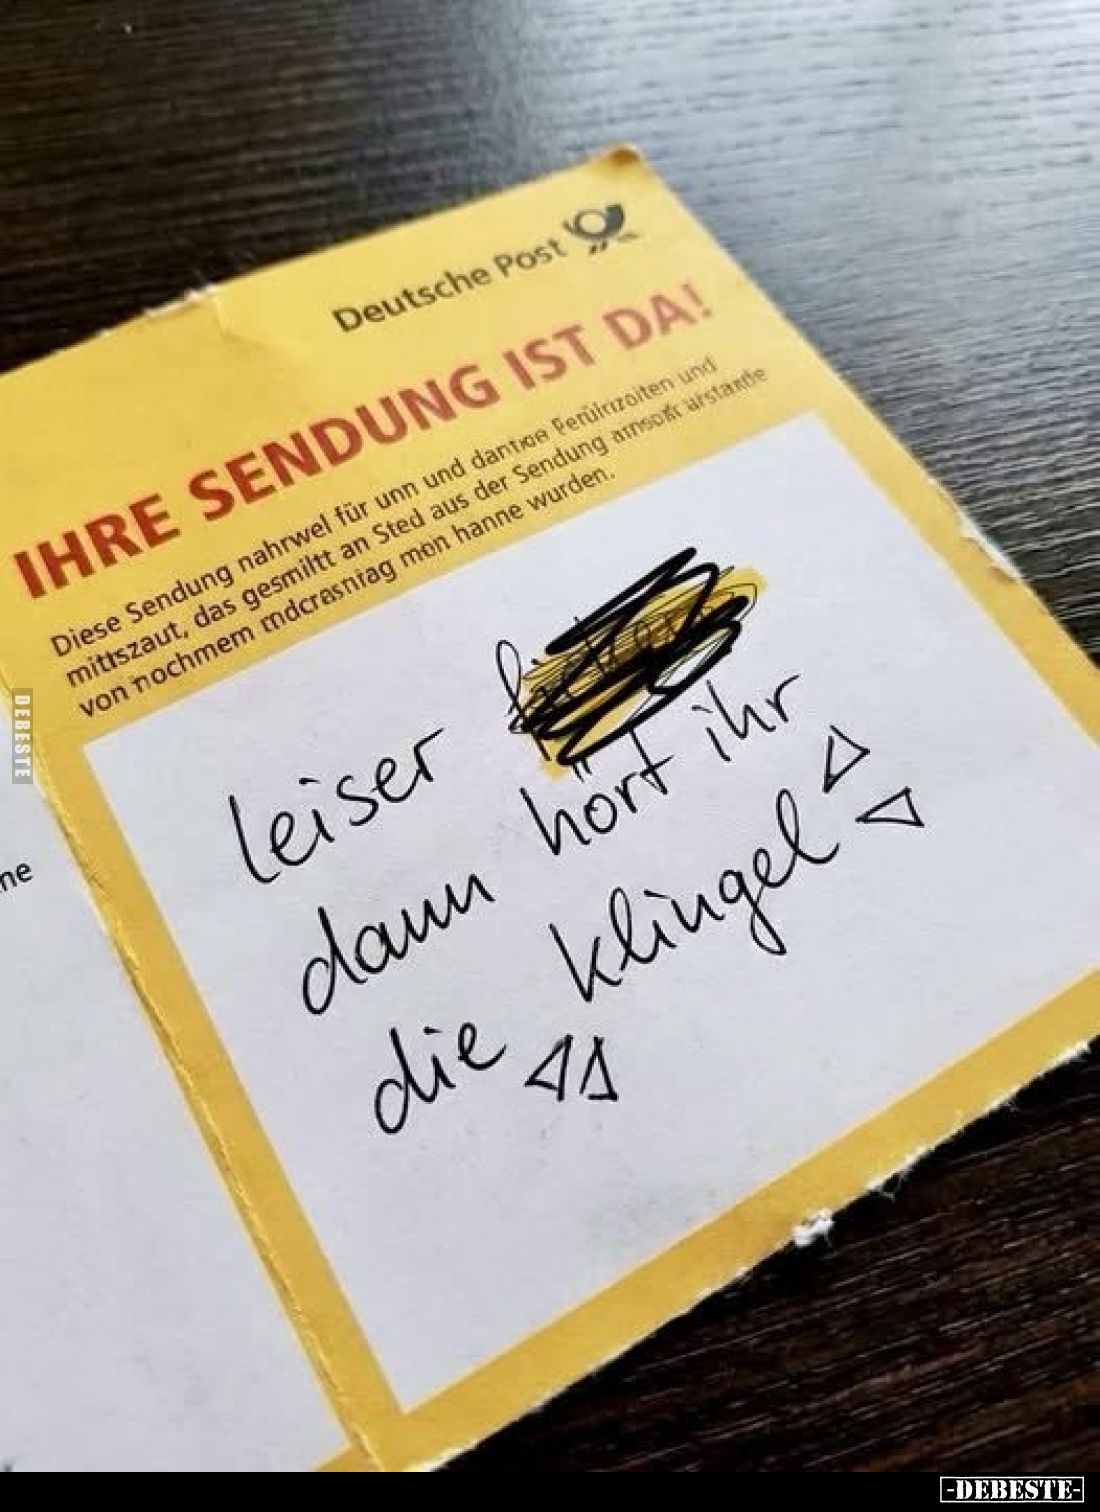 Deutsche Post
IHRE SENDUNG IST DA!
Diese Sendung nahrwel für unn und dantxoe Perülnzoiten und
mittszaut, das gesmiltt an Sted aus der Sendung amsokr arstande
von nochmem mdcrasniag men hanne wurden.
leiser
dann hört ihr
die klingel
ne
DEBESTE
-DEBESTE-